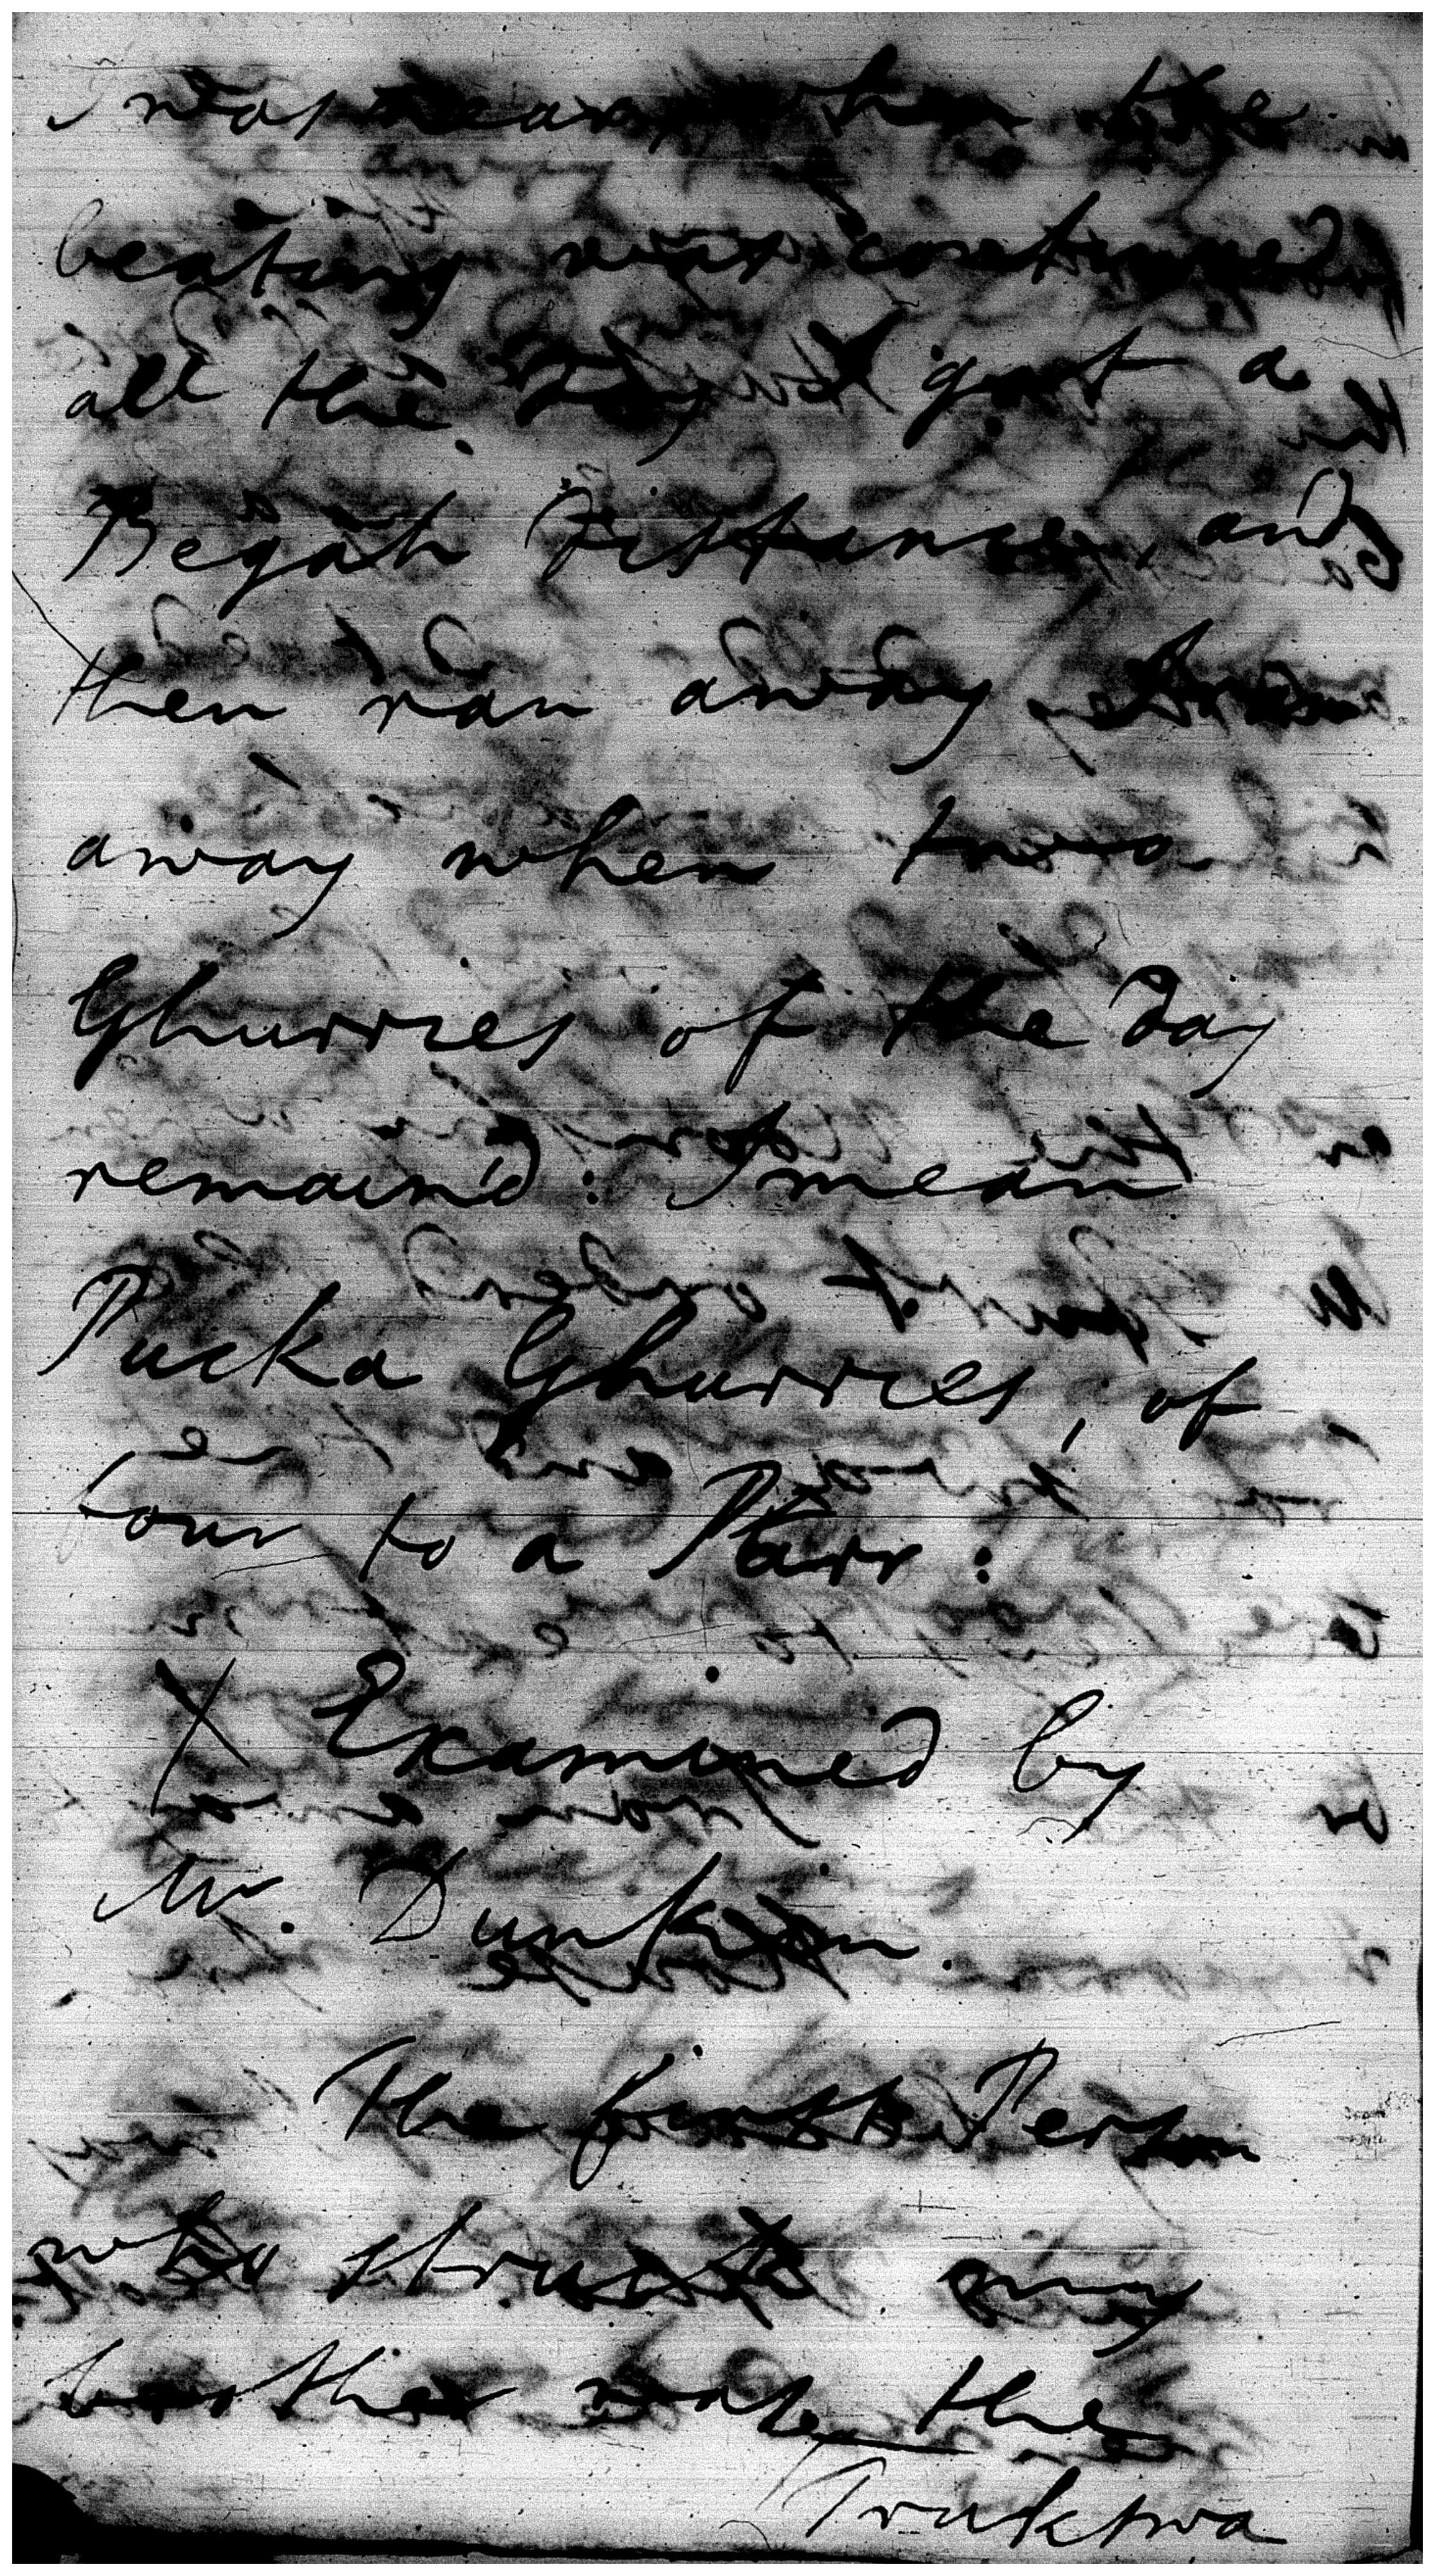 was near when the
beating was continued
all the Day I got a
Begah Distance, and
then ran away
away when two
Ghurries of the Day
remain'd: I mean
Pucka Ghurries, of
four to a Parr:
X Examined by
Mr. Dunkin.
The first Person
who struck my
brother was the
Truktwa